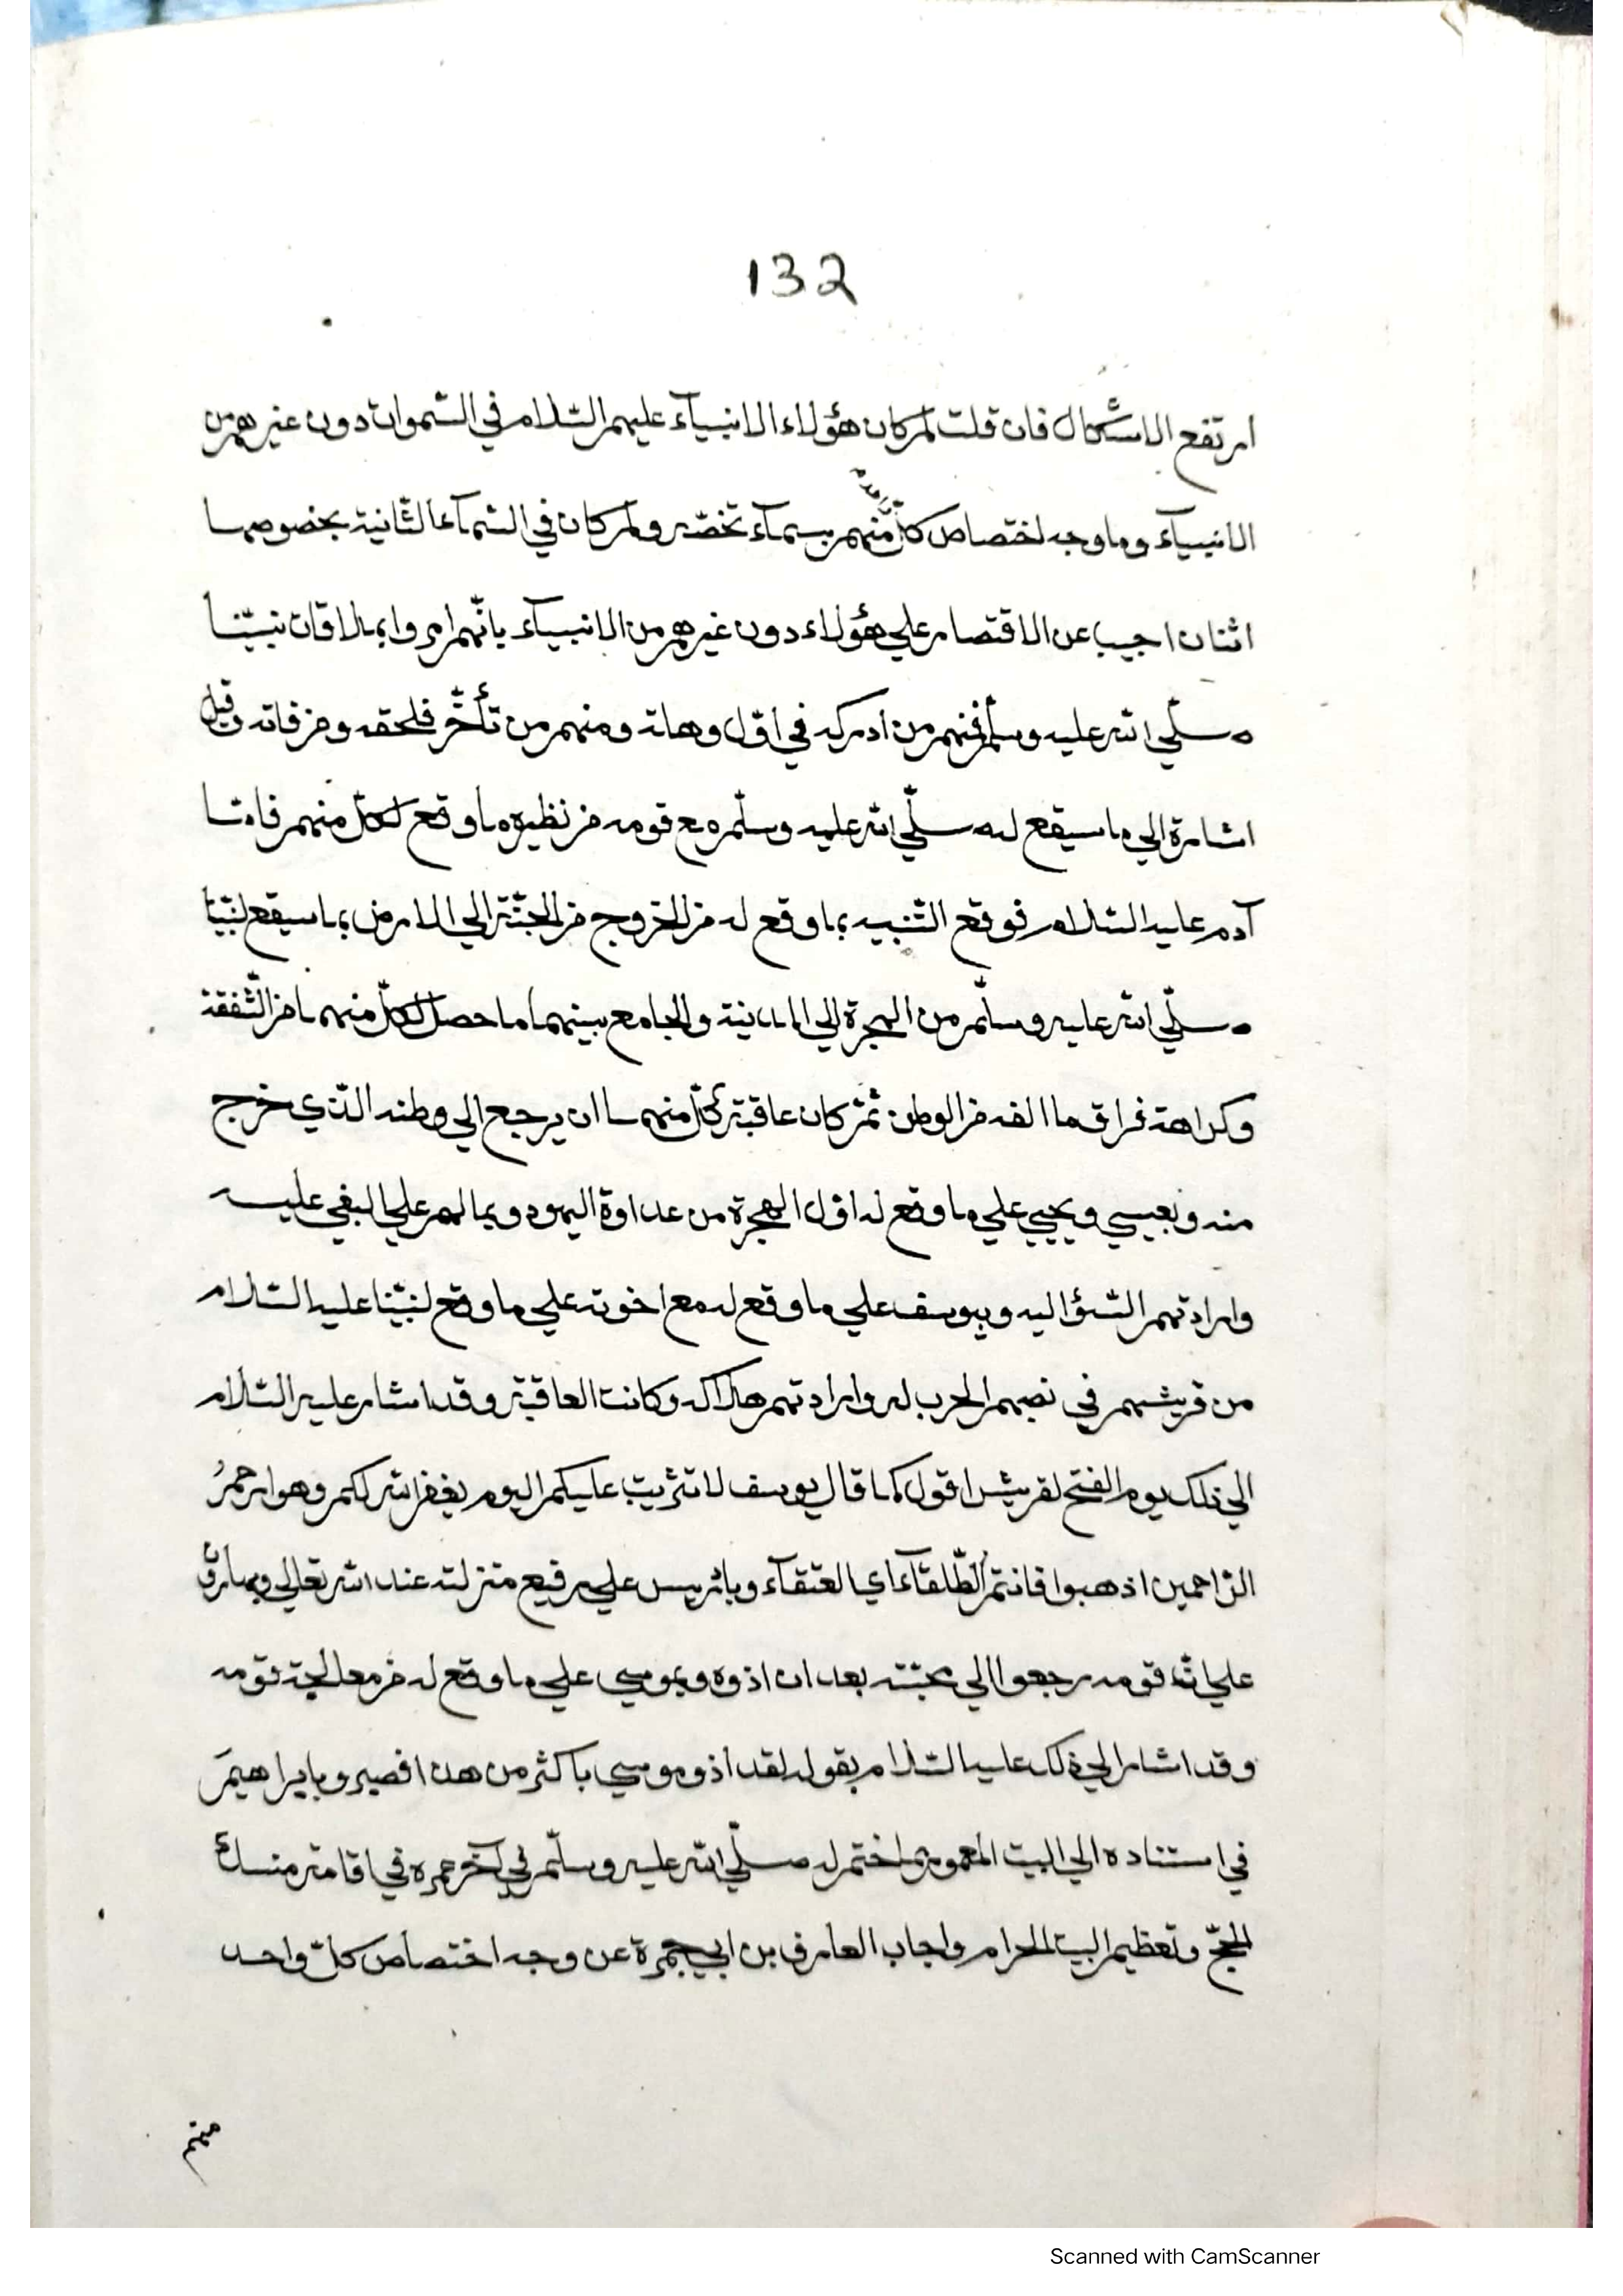 132
ارتفع الاشكال فان قلت لم كان هؤلاء الانبيآء عليهم السّلام في السّموات دون غيرهم من
الانبيآء وما وجه اختصاص كلّ واحد منهم بسمآء تخصّه ولم كان في السّمآء الثّانية بخصوصها
اثنان اجيب عن الاقتصار علي هؤلاء دون غيرهم من الانبيآء بانّهم امروا بملاقات نبيّنا
صلّي الله عليه وسلّم فمنهم من أدركه في أوّل وهلة ومنهم من تأخّر فلحقه ومن فاته وقيل
اشارة الي ما سيقع له صلّي الله عليه وسلّم مع قومه من نظيره ما وقع لكلّ منهم فامّا
آدم عليه السّلام فوقع التّنبيه بما وقع له من الخروج من الجنّة الي الارض بما سيقع لنبيّنا
صلّي الله عليه وسلّم من الهجرة الي المدينة والجامع بينهما ما حصل لكلّ منهما من الشّفقة
وكراهة فراق ما الفه من الوطن ثمّ كان عاقبة كلّ منهما ان يرجع الي وطنه الّذي خرج
منه وبعيسي ويحيي علي ما وقع له اوّل الهجرة من عداوة اليهود وتمالهم علي البغي عليه
وارادتهم السّؤ اليه وبيوسف علي ما وقع له مع اخوته علي ما وقع لنبيّنا عليه السّلام
من قريشهم في نصبهم الحرب له وارادتهم هلاكه وكانت العاقبة وقد اشار عليه السّلام
الي ذلك يوم الفتح لقريش اقول كما قال يوسف لا تثريب عليكم اليوم يغفر الله لكم وهو ارحمُ
الرّاحمين اذهبوا فانتم الطّلقآء اي العتقآء وبادريس علي رفيع منزلته عند الله تعالي وبهارون
علي انّ قومه رجعوا الي محبّته بعد ان اذوه وبموسي علي ما وقع له من معالجة قومه
وقد اشار الي ذلك عليه السّلام بقوله لقد أذو موسي باكثر من هذا فصبر وبابراهيمَ
في استناده الي البيت المعمور بما ختم له صلّي الله عليه وسلّم في آخر عمره في اقامة منسك
الحجّ وتعظيم البيت الحرام واجاب العارف بن ابي جمرة عن وجه اختصاص كلّ واحد
منهم
Scanned with CamScanner